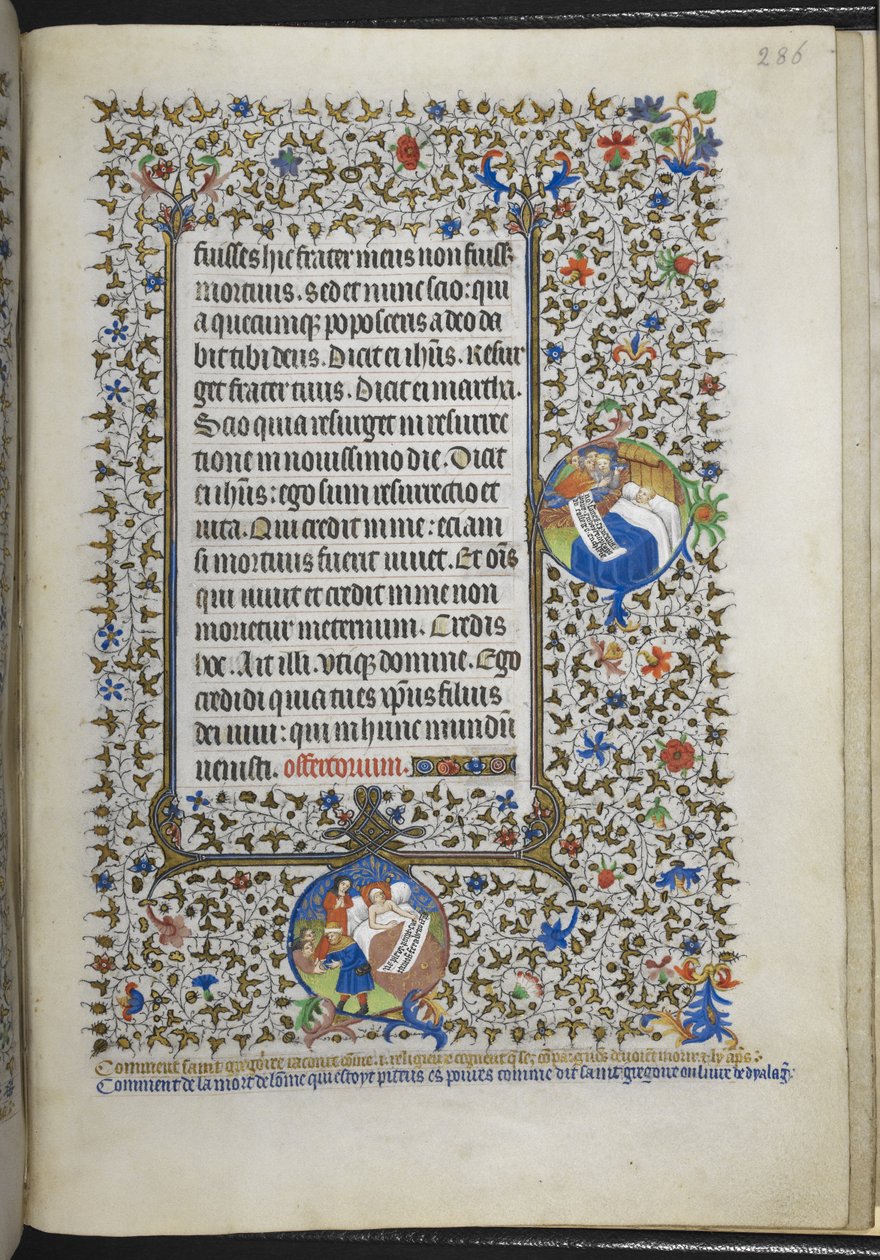 286
fuisses hic frater meus non fuiss͛
mortuus. Sed et nunc scio: qui
a quecumqꝫ poposceris a deo da
bit tibi deus. Dicit ei ihūs. Resur
get frater tuus. Dicit ei martha.
Scio quia resurget in resurrec
tione in nouissimo die. Dicit
ei ihūs: ego sum resurrectio et
uita. Qui credit in me: eciam
si mortuus fuerit uiuet. Et oīs
qui uiuit et credit in me non
morietur in eternum. Credis
hoc. Ait illi. vtiqꝫ domine. Ego
credidi quia tu es xp̄us filius
dei uiui: qui in hunc mundū
uenisti. offertorium.
Comment saint gregoire raconte cōme .i. religieux
Comment de la mort de lōme qui estoyt piteus es poures comme dit saint gregoire ou liure de dyalaḡ